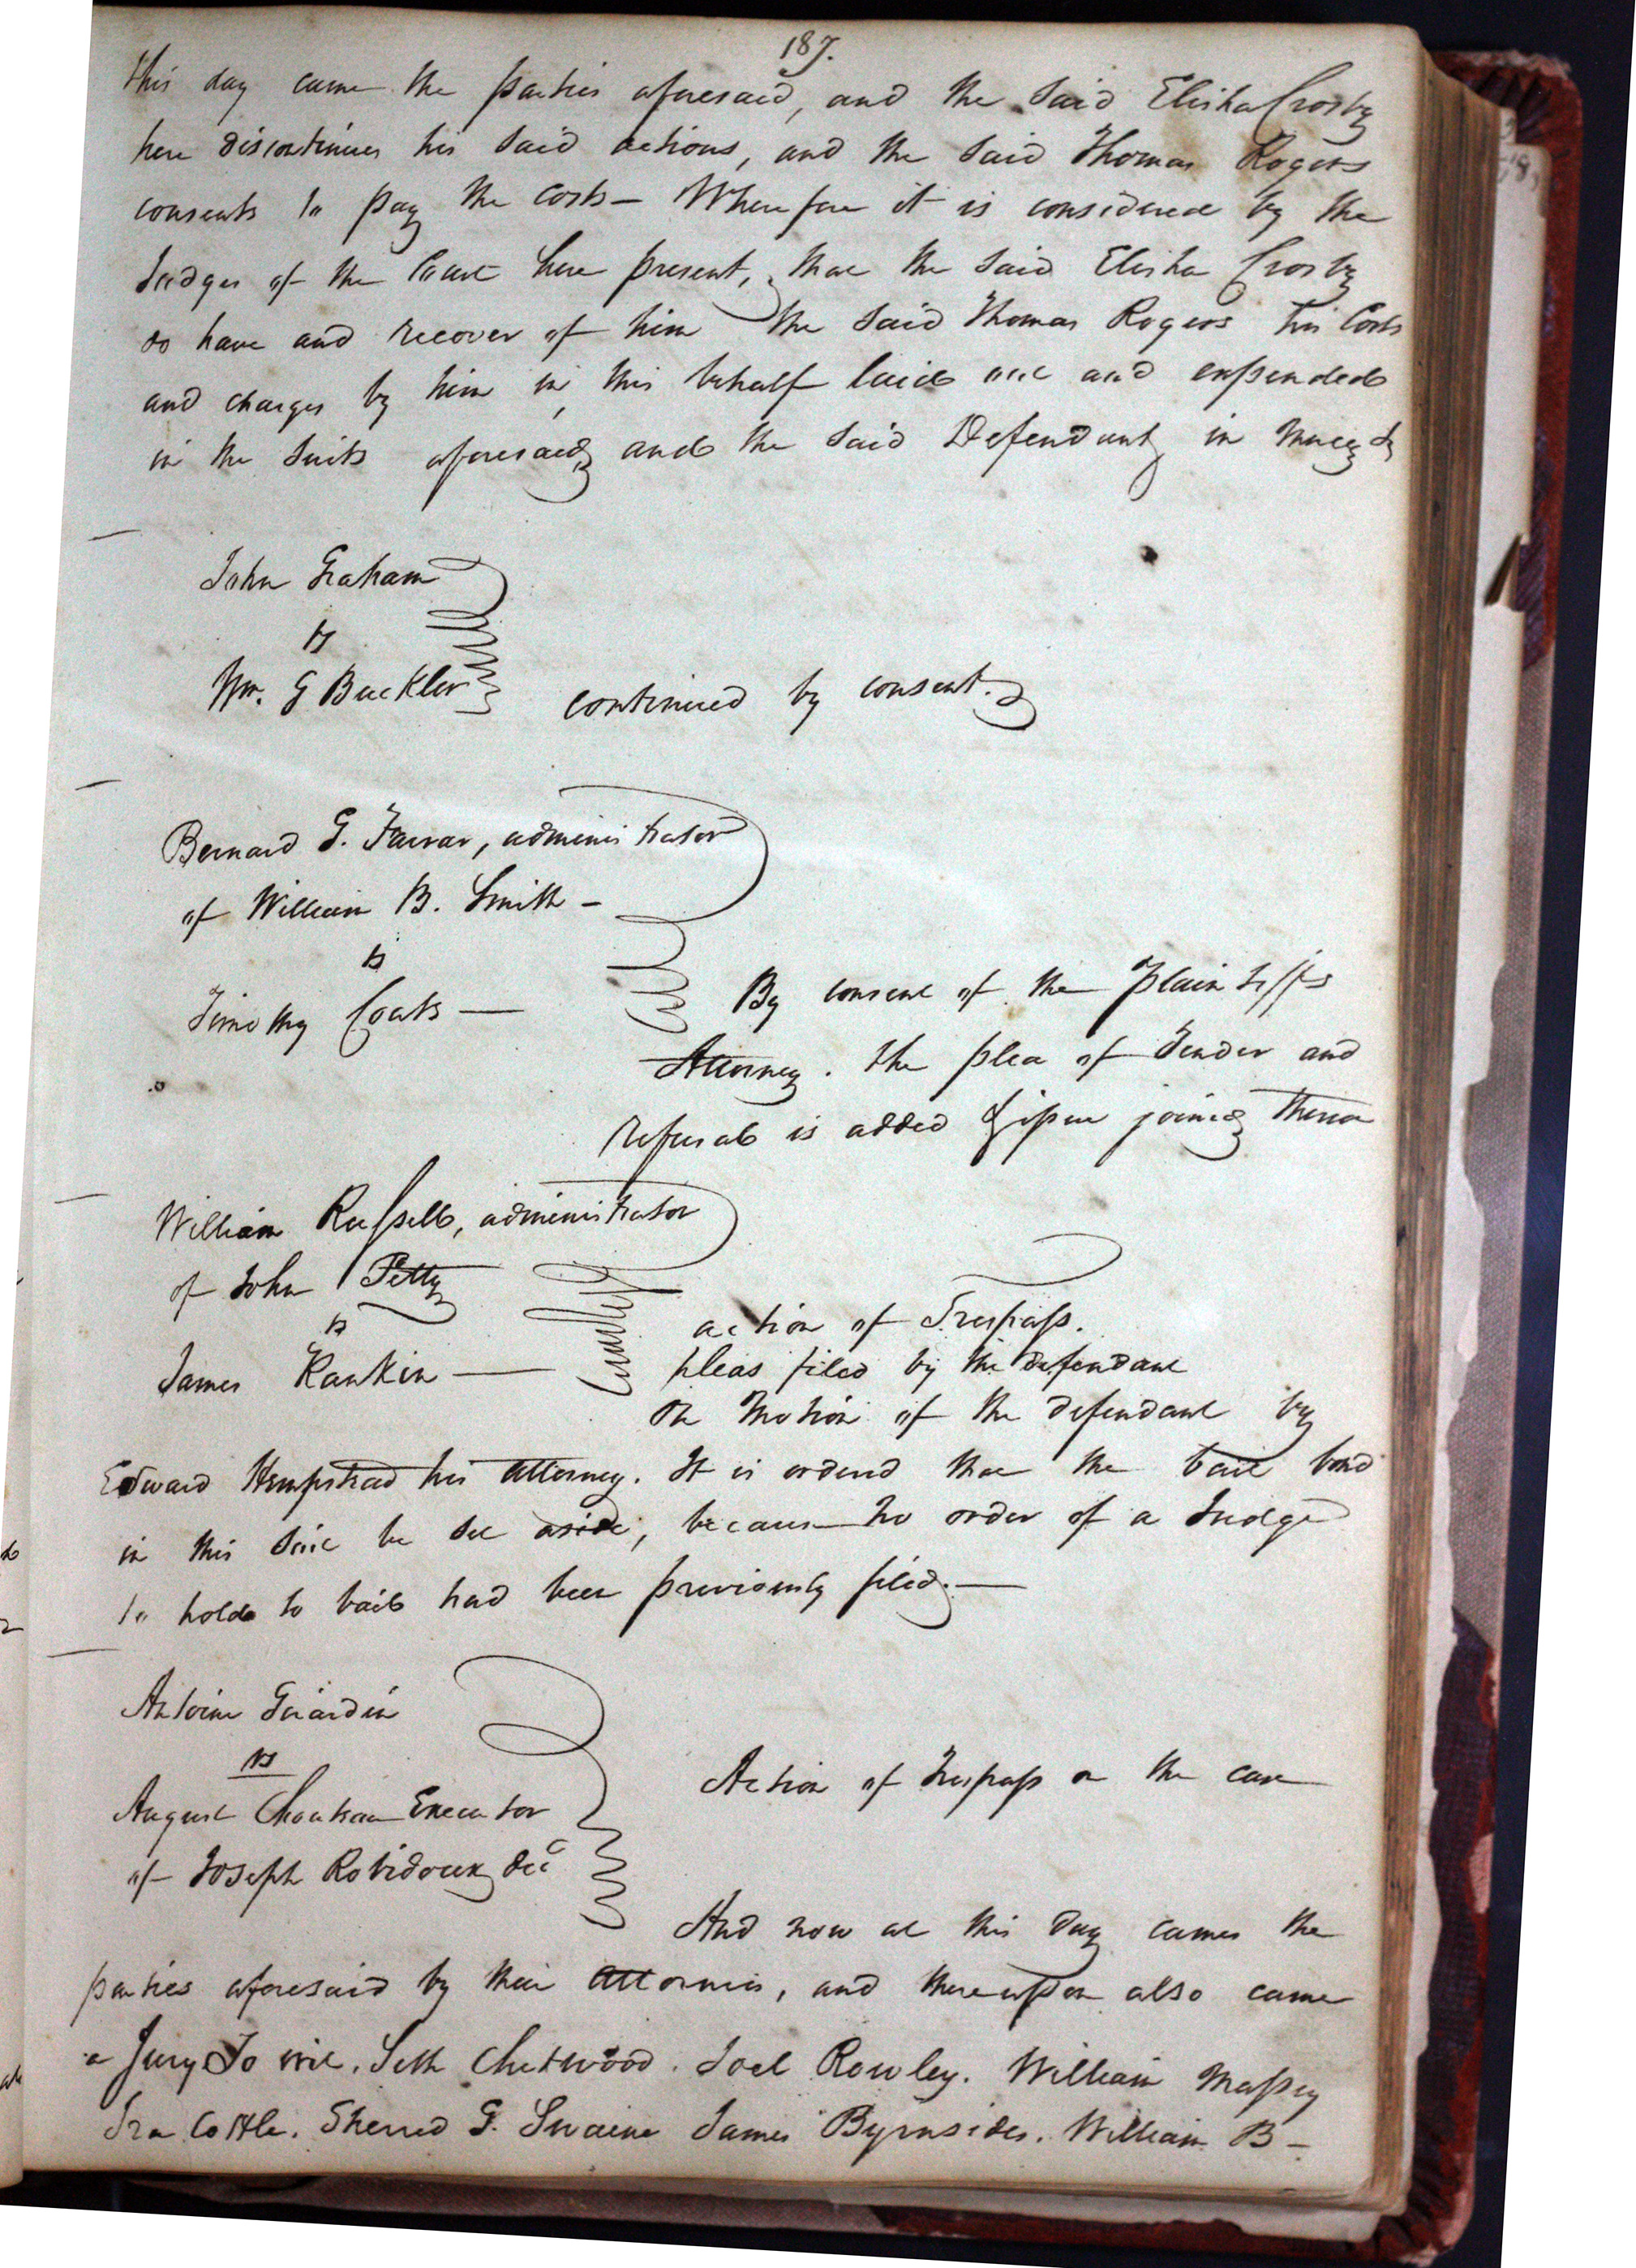 187.
this day came the parties aforesaid, and the Said Elisha Crosby
here discontinues his Said actions, and the Said Thomas Rogers
consents to pay the costs – Wherefore it is considered by the
Judges of the Court here present, that the Said Elisha Crosby
do have and recover of him the Said Thomas Rogers his Costs
and charges by him in this behalf laid out and expended
in the Suits aforesaid, and the Said Defendant in mercy &
John Graham
vs
Wm. G Buckler
continued by consent.
Bernard G. Farrar, administrator
of William B. Smith –
vs
Timothy Coats —
By consent of the Plaintiffs
Attorney. the plea of Tender and
refusal is added & issue joined thereon
William Russell, administrator
of John Petty
vs
James Rankin —
action of Trespass.
pleas filed by the defendant
On Motion of the defendant by
Edward Hempstead his attorney. It is ordered that the bail bond
in this Suit be set aside, because no order of a Judge
to hold to bail had been previously filed. —
Antoine Girardin
vs
August Chouteau Executor
of Joseph Robidoux decd
Action of Trespass on the case
And now at this day comes the
parties aforesaid by their attornies, and thereupon also came
a Jury To wit. Seth Chetwood. Joel Rowley. William Massey
Ira Cottle. Sherred G. Swaine James Byrnsides. William B –